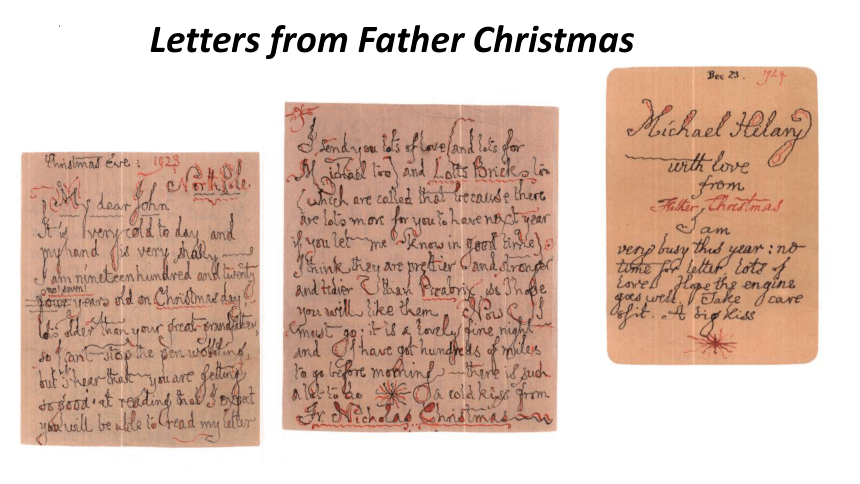 Letters from Father Christmas
Christmas Eve : 1923
North Pole
My dear John
It is very cold to day and
my hand is very shaky
I am nineteen hundred and twenty
no! seven
four years old on Christmas day
lots older than your great-grandfather,
so I can't stop the pen wobbling,
but I hear that you are getting
so good at reading that I expect
you will be able to read my letter
I send you lots of love (and lots for
Michael too) and Lotts Bricks too
(which are called that because there
are lots more for you to have next year
if you let me know in good time).
I think they are prettier and stronger
and tidier than Picabrix. So I hope
you will like them Now I
must go; it is a lovely fine night
and I have got hundreds of miles
to go before morning there is such
a lot to do
a cold kiss from
Fr. Nicholas Christmas
Dec 23. 1924
Michael Hilary
with love
from
Father Christmas
I am
very busy this year : no
time for letter Lots of
love. Hope the engine
goes well. Take care
of it. A big kiss